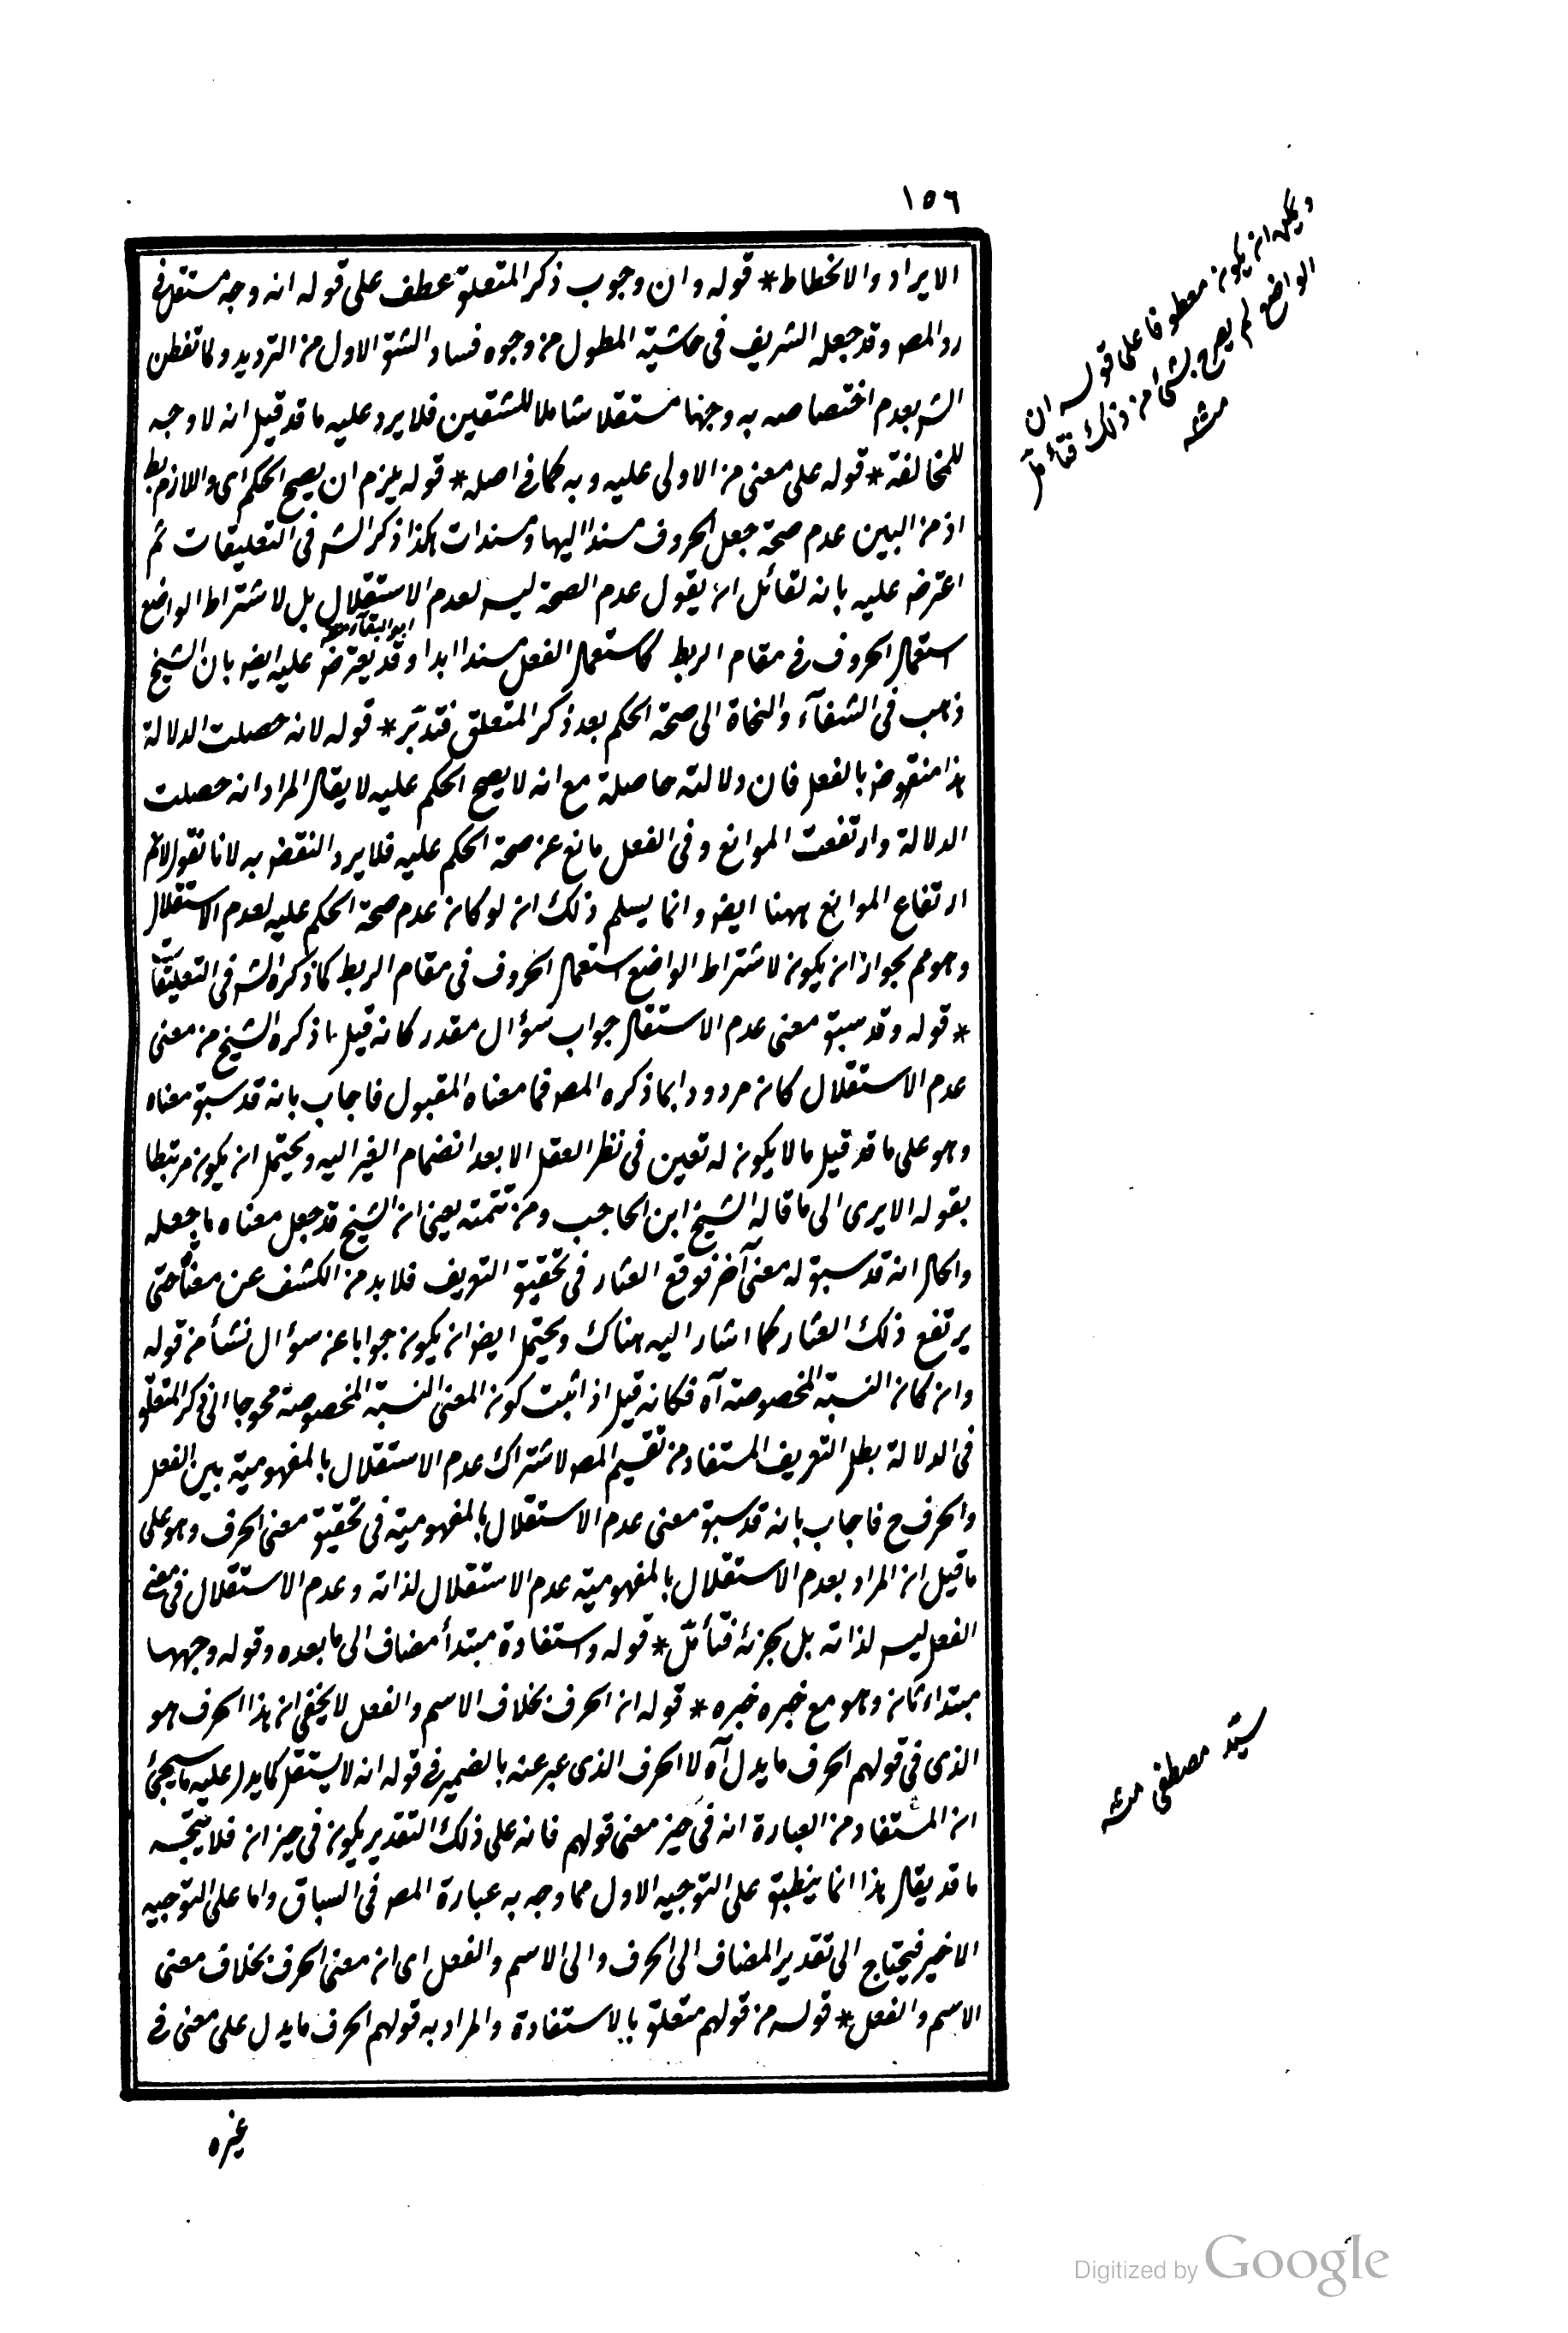 ١٥٦
ويمكن ان يكون معطوفا على قوله ان
الواضع لم يصرح بشئ من ذلك فتأمل
منه
الايراد والانحطاط * قوله وان وجوب ذكر المتعلق عطف على قوله انه وجه مستقل فى
رد المص وقد جعله الشريف فى حاشية المطول من وجوه فساد الشق الاول من الترديد ولما تفطن
الش بعدم اختصاصه به وجها مستقلا شاملا للشقين فلا يرد عليه ما قد قيل انه لا وجه
للمخالفة * قوله على معنى من الاولى عليه وبه كما فى اصله * قوله يلزم ان يصح الحكم اى واللازم بط
اذ من البين عدم صحة جعل الحروف مسندا اليها ومسندات هكذا ذكر الش فى التعليقات ثم
اعترض عليه بانه لقائل ان يقول عدم الصحة ليس لعدم الاستقلال بل لاشتراط الواضع
ابو البقا منه
استعمال الحروف فى مقام الربط كاستعمال الفعل مسندا ابدا وقد يعترض عليه ايض بان الشيخ
ذهب فى الشفآء والنجاة الى صحة الحكم بعد ذكر المتعلق فتدبّر * قوله لانه حصلت الدلالة
هذا منقوض بالفعل فان دلالته حاصلة مع انه لا يصح الحكم عليه لا يقال المراد انه حصلت
الدلالة وارتفعت الموانع وفى الفعل مانع عن صحة الحكم عليه فلا يرد النقض به لانا نقول لانم
ارتفاع الموانع ههنا ايض وانما يسلم ذلك ان لو كان عدم صحة الحكم عليه لعدم الاستقلال
وهو مم لجواز ان يكون لاشتراط الواضع استعمال الحروف فى مقام الربط كما ذكره الش فى التعليقات
* قوله وقد سبق معنى عدم الاستقلال جواب سؤال مقدر كانه قيل ما ذكره الشيخ من معنى
عدم الاستقلال كان مردودا بما ذكره المص فما معناه المقبول فاجاب بانه قد سبق معناه
وهو على ما قد قيل ما لا يكون له تعين فى نظر العقل الا بعد انضمام الغير اليه ويحتمل ان يكون مرتبطا
بقوله الا يرى الى ما قاله الشيخ ابن الحاجب ومن تتمته يعنى ان الشيخ قد جعل معناه ما جعله
والحال انه قد سبق له معنى آخر فوقع العثار فى تحقيق التعريف فلا بد من الكشف عن معناه حتى
يرتفع ذلك العثار كما اشار اليه هناك ويحتمل ايض ان يكون جوابا عن سؤال نشأ من قوله
وان كان النسبة المخصوصة آه فكانه قيل اذ اثبت كون المعنى النسبة المخصوصة محوجا الى ذكر المتعلق
فى الدلالة بطل التعريف المستفاد من تقسيم المص لاشتراك عدم الاستقلال بالمفهومية بين الفعل
والحرف ح فاجاب بانه قد سبق معنى عدم الاستقلال بالمفهومية فى تحقيق معنى الحرف وهو على
ما قيل ان المراد بعدم الاستقلال بالمفهومية عدم الاستقلال لذاته وعدم الاستقلال فى معنى
الفعل ليس لذاته بل لجزئه فتأمّل * قوله واستفادة مبتدأ مضاف الى ما بعده وقوله وجهها
مبتداء ثان وهو مع خبره خبره * قوله ان الحرف بخلاف الاسم والفعل لا يخفى ان هذا الحرف هو
الذى فى قولهم الحرف ما يدل آه لا الحرف الذى عبر عنه بالضمير فى قوله انه لا يستقل كما يدل عليه ما سيجئ
ان المستفاد من العبارة انه فى حيز معنى قولهم فانه على ذلك التقدير يكون فى حيز ان فلا يتجه
ما قد يقال هذا انما ينطبق على التوجيه الاول مما وجه به عبارة المص فى السباق واما على التوجيه
الاخير فيحتاج الى تقدير المضاف الى الحرف والى الاسم والفعل اى ان معنى الحرف بخلاف معنى
الاسم والفعل * قوله من قولهم متعلق بالاستفادة والمراد به قولهم الحرف ما يدل على معنى فى
سيّد مصطفى منه
غيره
Digitized by Google